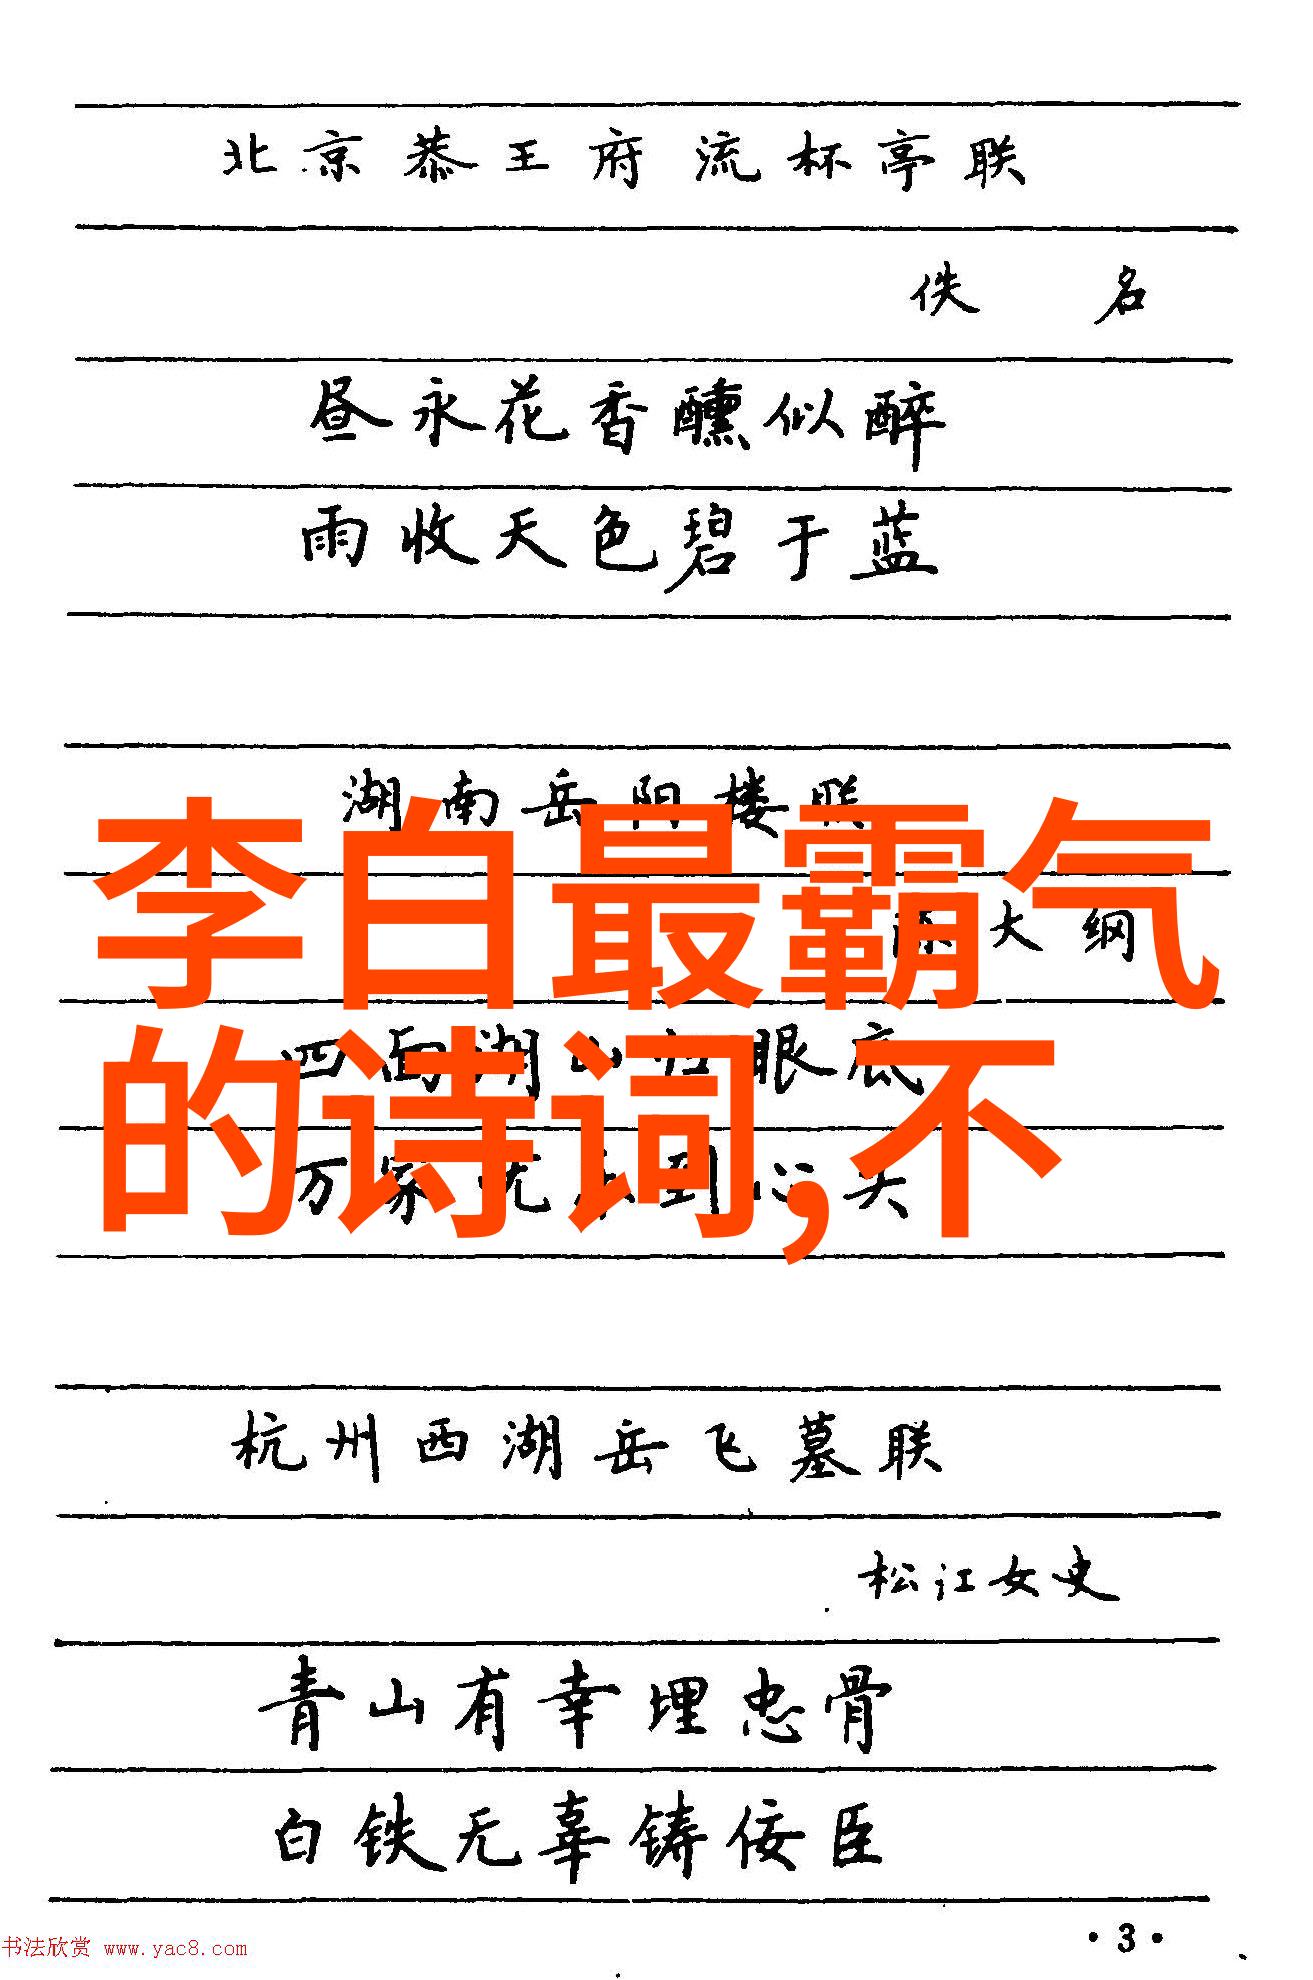 北京恭王府流杯亭联
佚名
昼永花香醺似醉
雨收天色碧于蓝
湖南岳阳楼联
李白最霸气
大纲
的诗词,不
四面湖山归眼底
万家忧乐到心头
杭州西湖岳飞墓联
松江女史
青山有幸埋忠骨
白铁无辜铸佞臣
·3·
书法欣赏 www.yac8.com